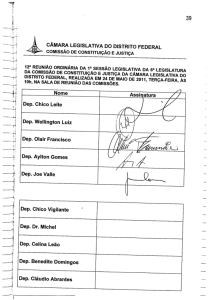 39
CÂMARA LEGISLATIVA DO DISTRITO FEDERAL
COMISSÃO DE CONSTITUIÇÃO E JUSTIÇA
12ª REUNIÃO ORDINÁRIA DA 1ª SESSÃO LEGISLATIVA DA 6ª LEGISLATURA
DA COMISSÃO DE CONSTITUIÇÃO E JUSTIÇA DA CÂMARA LEGISLATIVA DO
DISTRITO FEDERAL, REALIZADA EM 24 DE MAIO DE 2011, TERÇA-FEIRA, ÀS
10h, NA SALA DE REUNIÃO DAS COMISSÕES.
Nome Assinatura
Dep. Chico Leite
Dep. Wellington Luiz
Dep. Olair Francisco
Dep. Aylton Gomes
Dep. Joe Valle
Dep. Chico Vigilante
Dep. Dr. Michel
Dep. Celina Leão
Dep. Benedito Domingos
Dep. Cláudio Abrantes